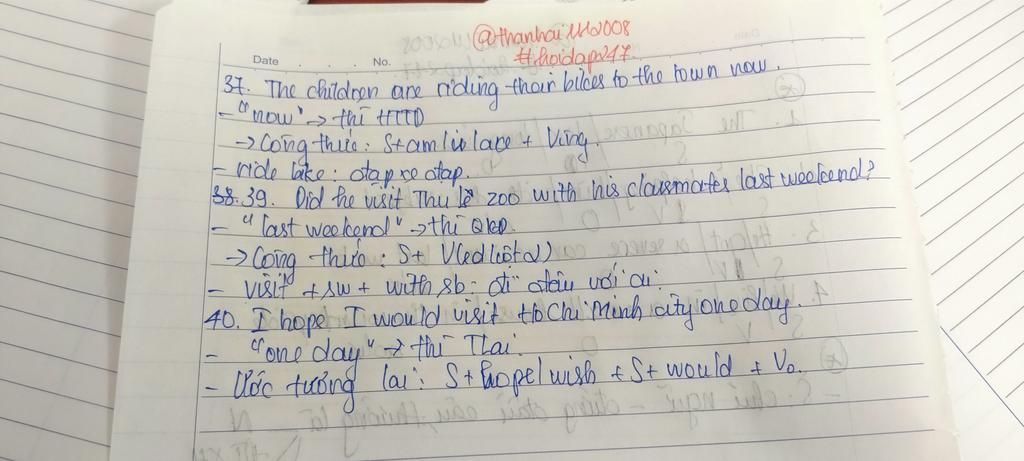 @thanhai112008
#hoidap247
Date . . . No.
37. The children are riding their bikes to the town now.
- "now" → thì HTTD
→ Công thức: S + am/is/are + Ving.
- ride bike: đạp xe đạp.
38.39. Did he visit Thu lệ zoo with his classmates last weekend?
- "last weekend" → thì QKD.
→ Công thức: S + V(ed/cột 2)
- visit + sw + with sb: đi đâu với ai.
40. I hope I would visit Ho Chi Minh city one day.
- "one day" → thì TLai.
- Ước tương lai: S + hope/wish + S + would + Vo.